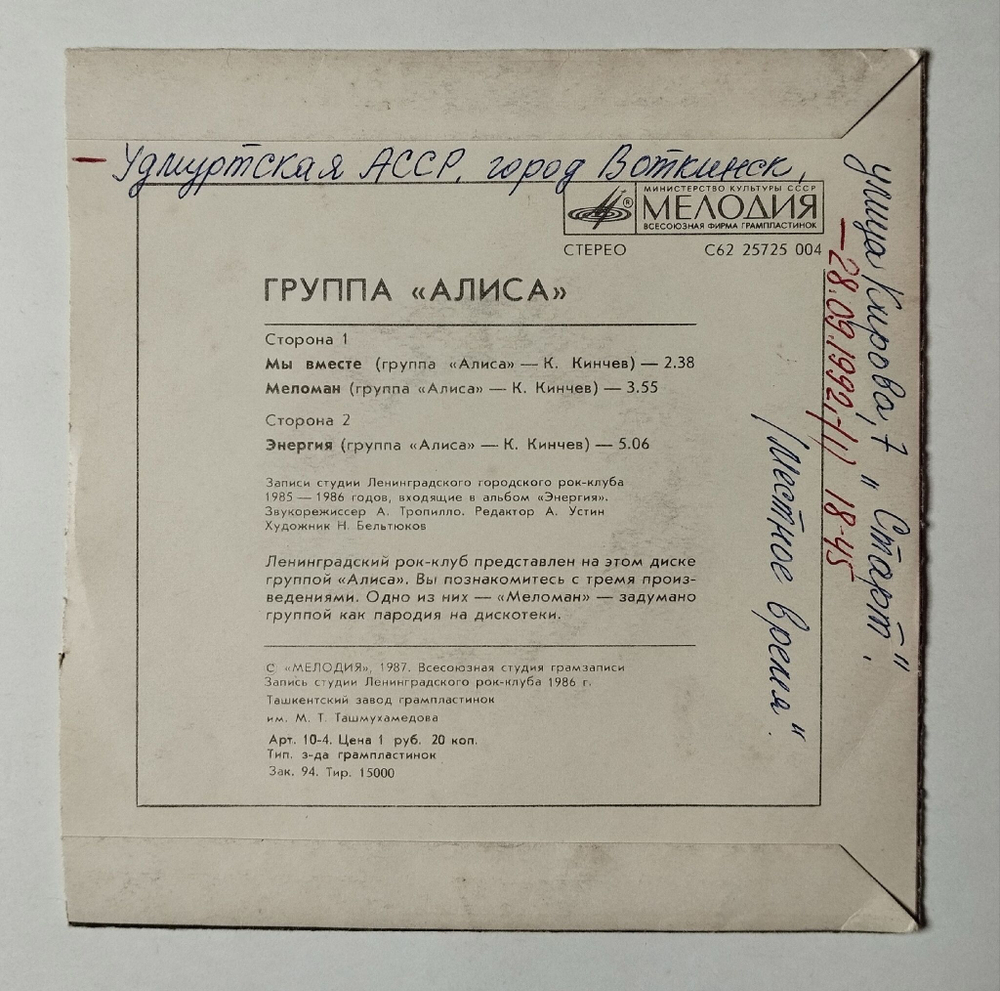 — Удмуртская АССР, город Воткинск,
улица Кирова, 7 "Старт".
— 28.09.1992,-/1/ 18-45
/"Местное время".
МИНИСТЕРСТВО КУЛЬТУРЫ СССР
® МЕЛОДИЯ
ВСЕСОЮЗНАЯ ФИРМА ГРАМПЛАСТИНОК
СТЕРЕО С62 25725 004
ГРУППА «АЛИСА»
Сторона 1
Мы вместе (группа «Алиса» — К. Кинчев) — 2.38
Меломан (группа «Алиса» — К. Кинчев) — 3.55
Сторона 2
Энергия (группа «Алиса» — К. Кинчев) — 5.06
Записи студии Ленинградского городского рок-клуба
1985 — 1986 годов, входящие в альбом «Энергия».
Звукорежиссер А. Тропилло. Редактор А. Устин
Художник Н. Бельтюков
Ленинградский рок-клуб представлен на этом диске
группой «Алиса». Вы познакомитесь с тремя произ-
ведениями. Одно из них — «Меломан» — задумано
группой как пародия на дискотеки.
С «МЕЛОДИЯ», 1987. Всесоюзная студия грамзаписи
Запись студии Ленинградского рок-клуба 1986 г.
Ташкентский завод грампластинок
им. М. Т. Ташмухамедова
Арт. 10-4. Цена 1 руб. 20 коп.
Тип. з-да грампластинок
Зак. 94. Тир. 15000